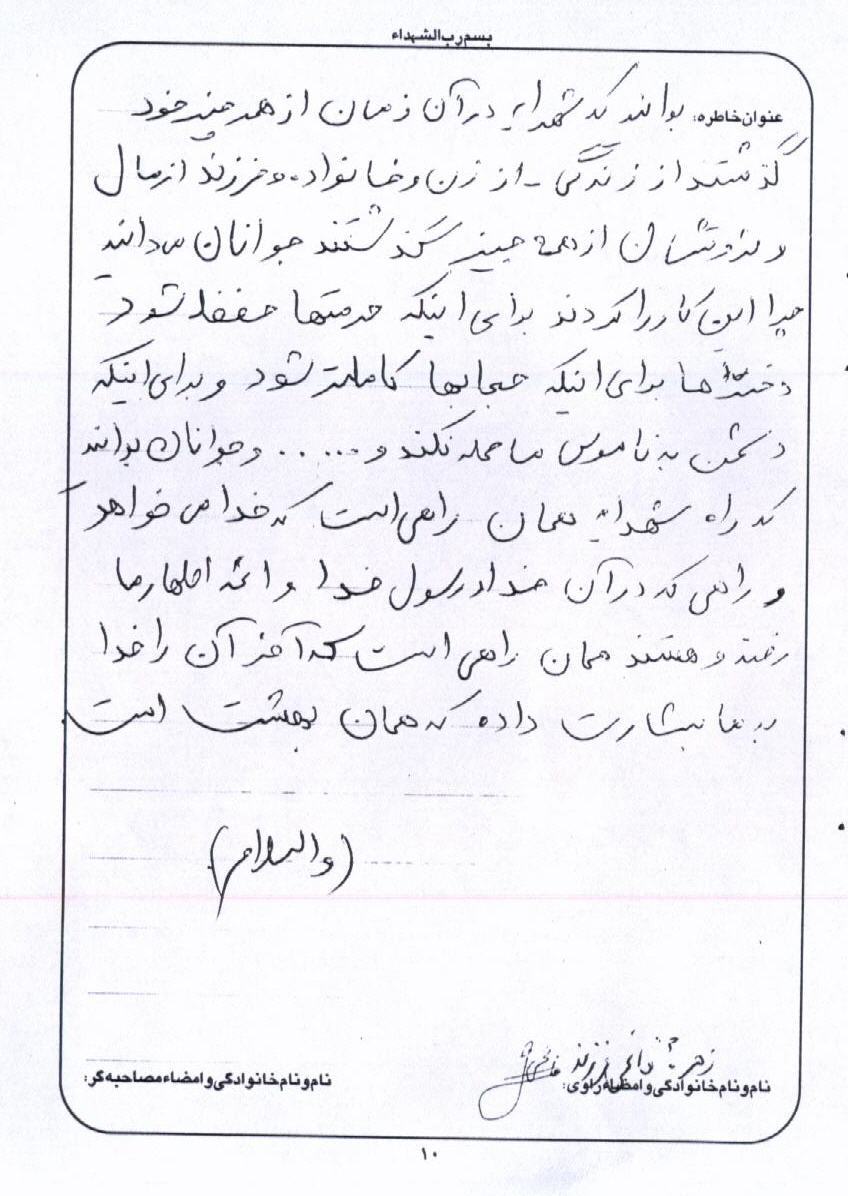 بسم رب الشهداء
عنوان خاطره: بدانند که شهداء در آن زمان از همه چیز خود
گذشتند از زندگی - از زن و خانواده و فرزند از مال
و ثروتشان از همه چیز گذشتند جوانان بدانند
چرا این کار را کردند برای اینکه حرمتها حفظ شود
دخترها برای اینکه حجابها کاملتر شود و برای اینکه
دشمن به ناموس ما حمله نکند و ..... و جوانان بدانند
که راه شهداء همان راهی است که خدا می خواهد
و راهی که در آن خدا و رسول خدا و ائمه اطهار ما
رفته و هستند همان راهی است که آخر آن را خدا
به ما بشارت داده که همان بهشت است.
(والسلام)
زهرا فرزند
نام و نام خانوادگی و امضاء راوی:
نام و نام خانوادگی و امضاء مصاحبه گر:
۱۰